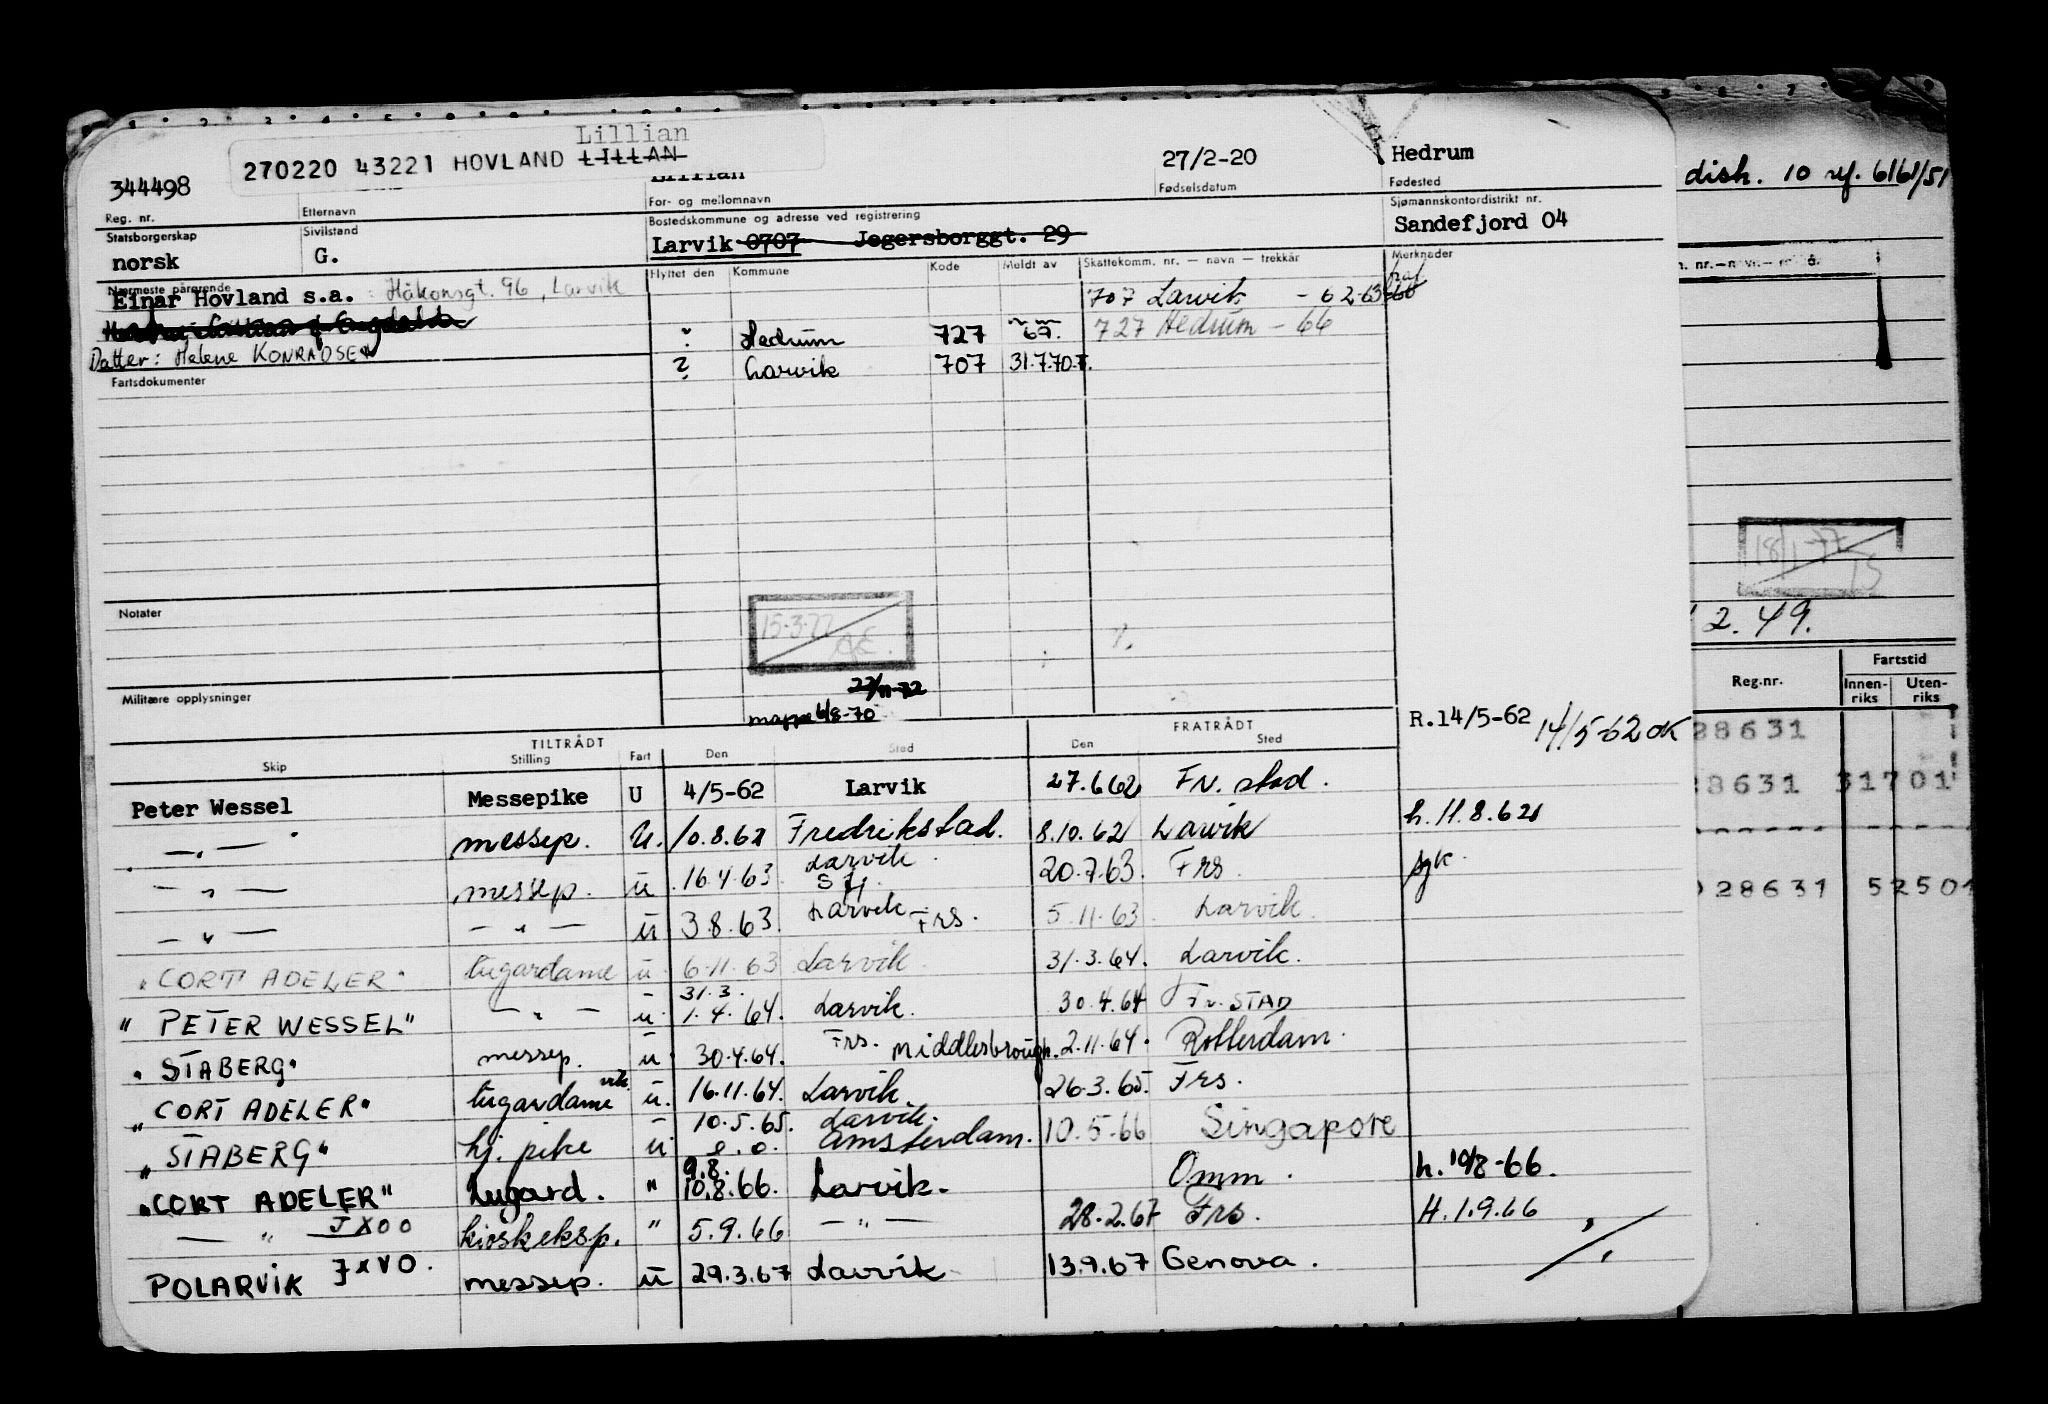 Lillian
270220 43221 HOVLAND LILLAN
344498 Lillian 27/2-20 Hedrum
Reg. nr. Etternavn For- og mellomnavn Fødselsdatum Fødested
disk. 10 ref. 6161/51
Statsborgerskap Sivilstand Bostedskommune og adresse ved registrering Sjømannskontordistrikt nr.
norsk G. Larvik 0707 Jegersborggt. 29 Sandefjord 04
Nærmeste pårørende Flyttet den Kommune Kode Meldt av Skattekomm. nr. — navn — trekkår Merknader
Einar Hovland s.a. : Håkonsgt. 96, Larvik
707 Larvik - 62-63
? Hedrum 727 67. 727 Hedrum - 66
Datter: Helene KONRADSEN
? Larvik 707 31.7.70.
Fartsdokumenter
18/1-77
Notater
15-3-77
2.49.
Militære opplysninger
mappe 6/8-70
Reg.nr. Fartstid
Innen-riks Uten-riks
TILTRÅDT FRATRÅDT
R.14/5-62 14/5-62 OK
28631
Skip Stilling Fart Den Sted Den Sted
Peter Wessel Messepike U 4/5-62 Larvik 27.6 62 Fr. stad.
28631 31701
— " — messep. U. 10.8.62 Fredrikstad. 8.10.62 Larvik h. 11.8.62
— " — messep. u 16.4.63 Larvik 20.7.63. Frs.
028631 52501
— " — — " — u 3.8.63 Larvik Frs. 5.11.63. Larvik.
"CORT ADELER" lugardame u 6.11.63 Larvik 31.3.64. Larvik.
31.3.
"PETER WESSEL" — " — u. 1.4.64. Larvik. 30.4.64 Fr. STAD
"STABERG" messep. u 30.4.64. Frs. Middlesbrough. 2.11.64. Rotterdam.
"CORT ADELER" lugardame vik. u. 16.11.64. Larvik. 26.3.65. Frs.
10.5.65. Larvik.
"STABERG" hj. pike u e.o. Amsterdam. 10.5.66 Singapore
9.8.
"CORT ADELER" Lugard. " 10.8.66. Larvik. Omm. h. 10/8-66.
— " — JXOO kioskeksp. " 5.9.66 — " — 28.2.67 Frs. H. 1.9.66
POLARVIK JXVO. messep. u 29.3.67 Larvik 13.9.67 Genova.